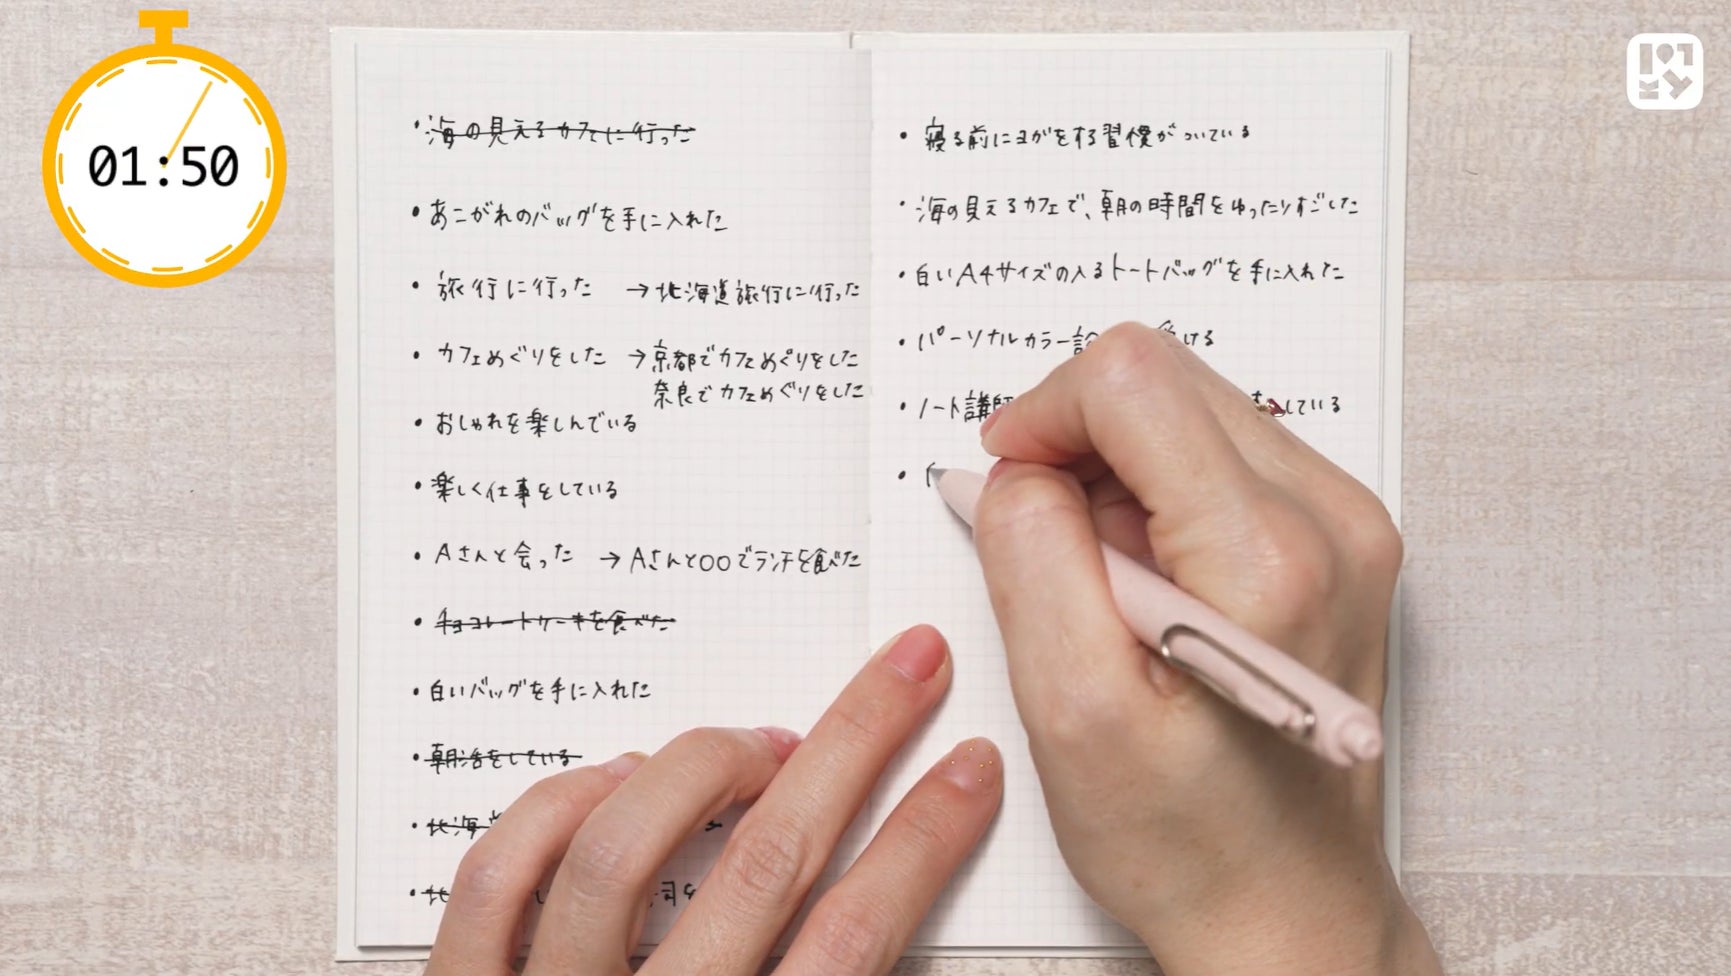 01:50
・海の見えるカフェに行った
・あこがれのバッグを手に入れた
・旅行に行った →北海道旅行に行った
・カフェめぐりをした →京都でカフェめぐりをした
奈良でカフェめぐりをした
・おしゃれを楽しんでいる
・楽しく仕事をしている
・Aさんと会った →Aさんと○○でランチを食べた
・チョコレートケーキを食べた
・白いバッグを手に入れた
・朝活をしている
・北海道
・北
・寝る前にヨガをする習慣がついている
・海の見えるカフェで、朝の時間をゆったりすごした
・白いA4サイズの入るトートバッグを手に入れた
・パーソナルカラー診 受ける
・ノート講師 している
・